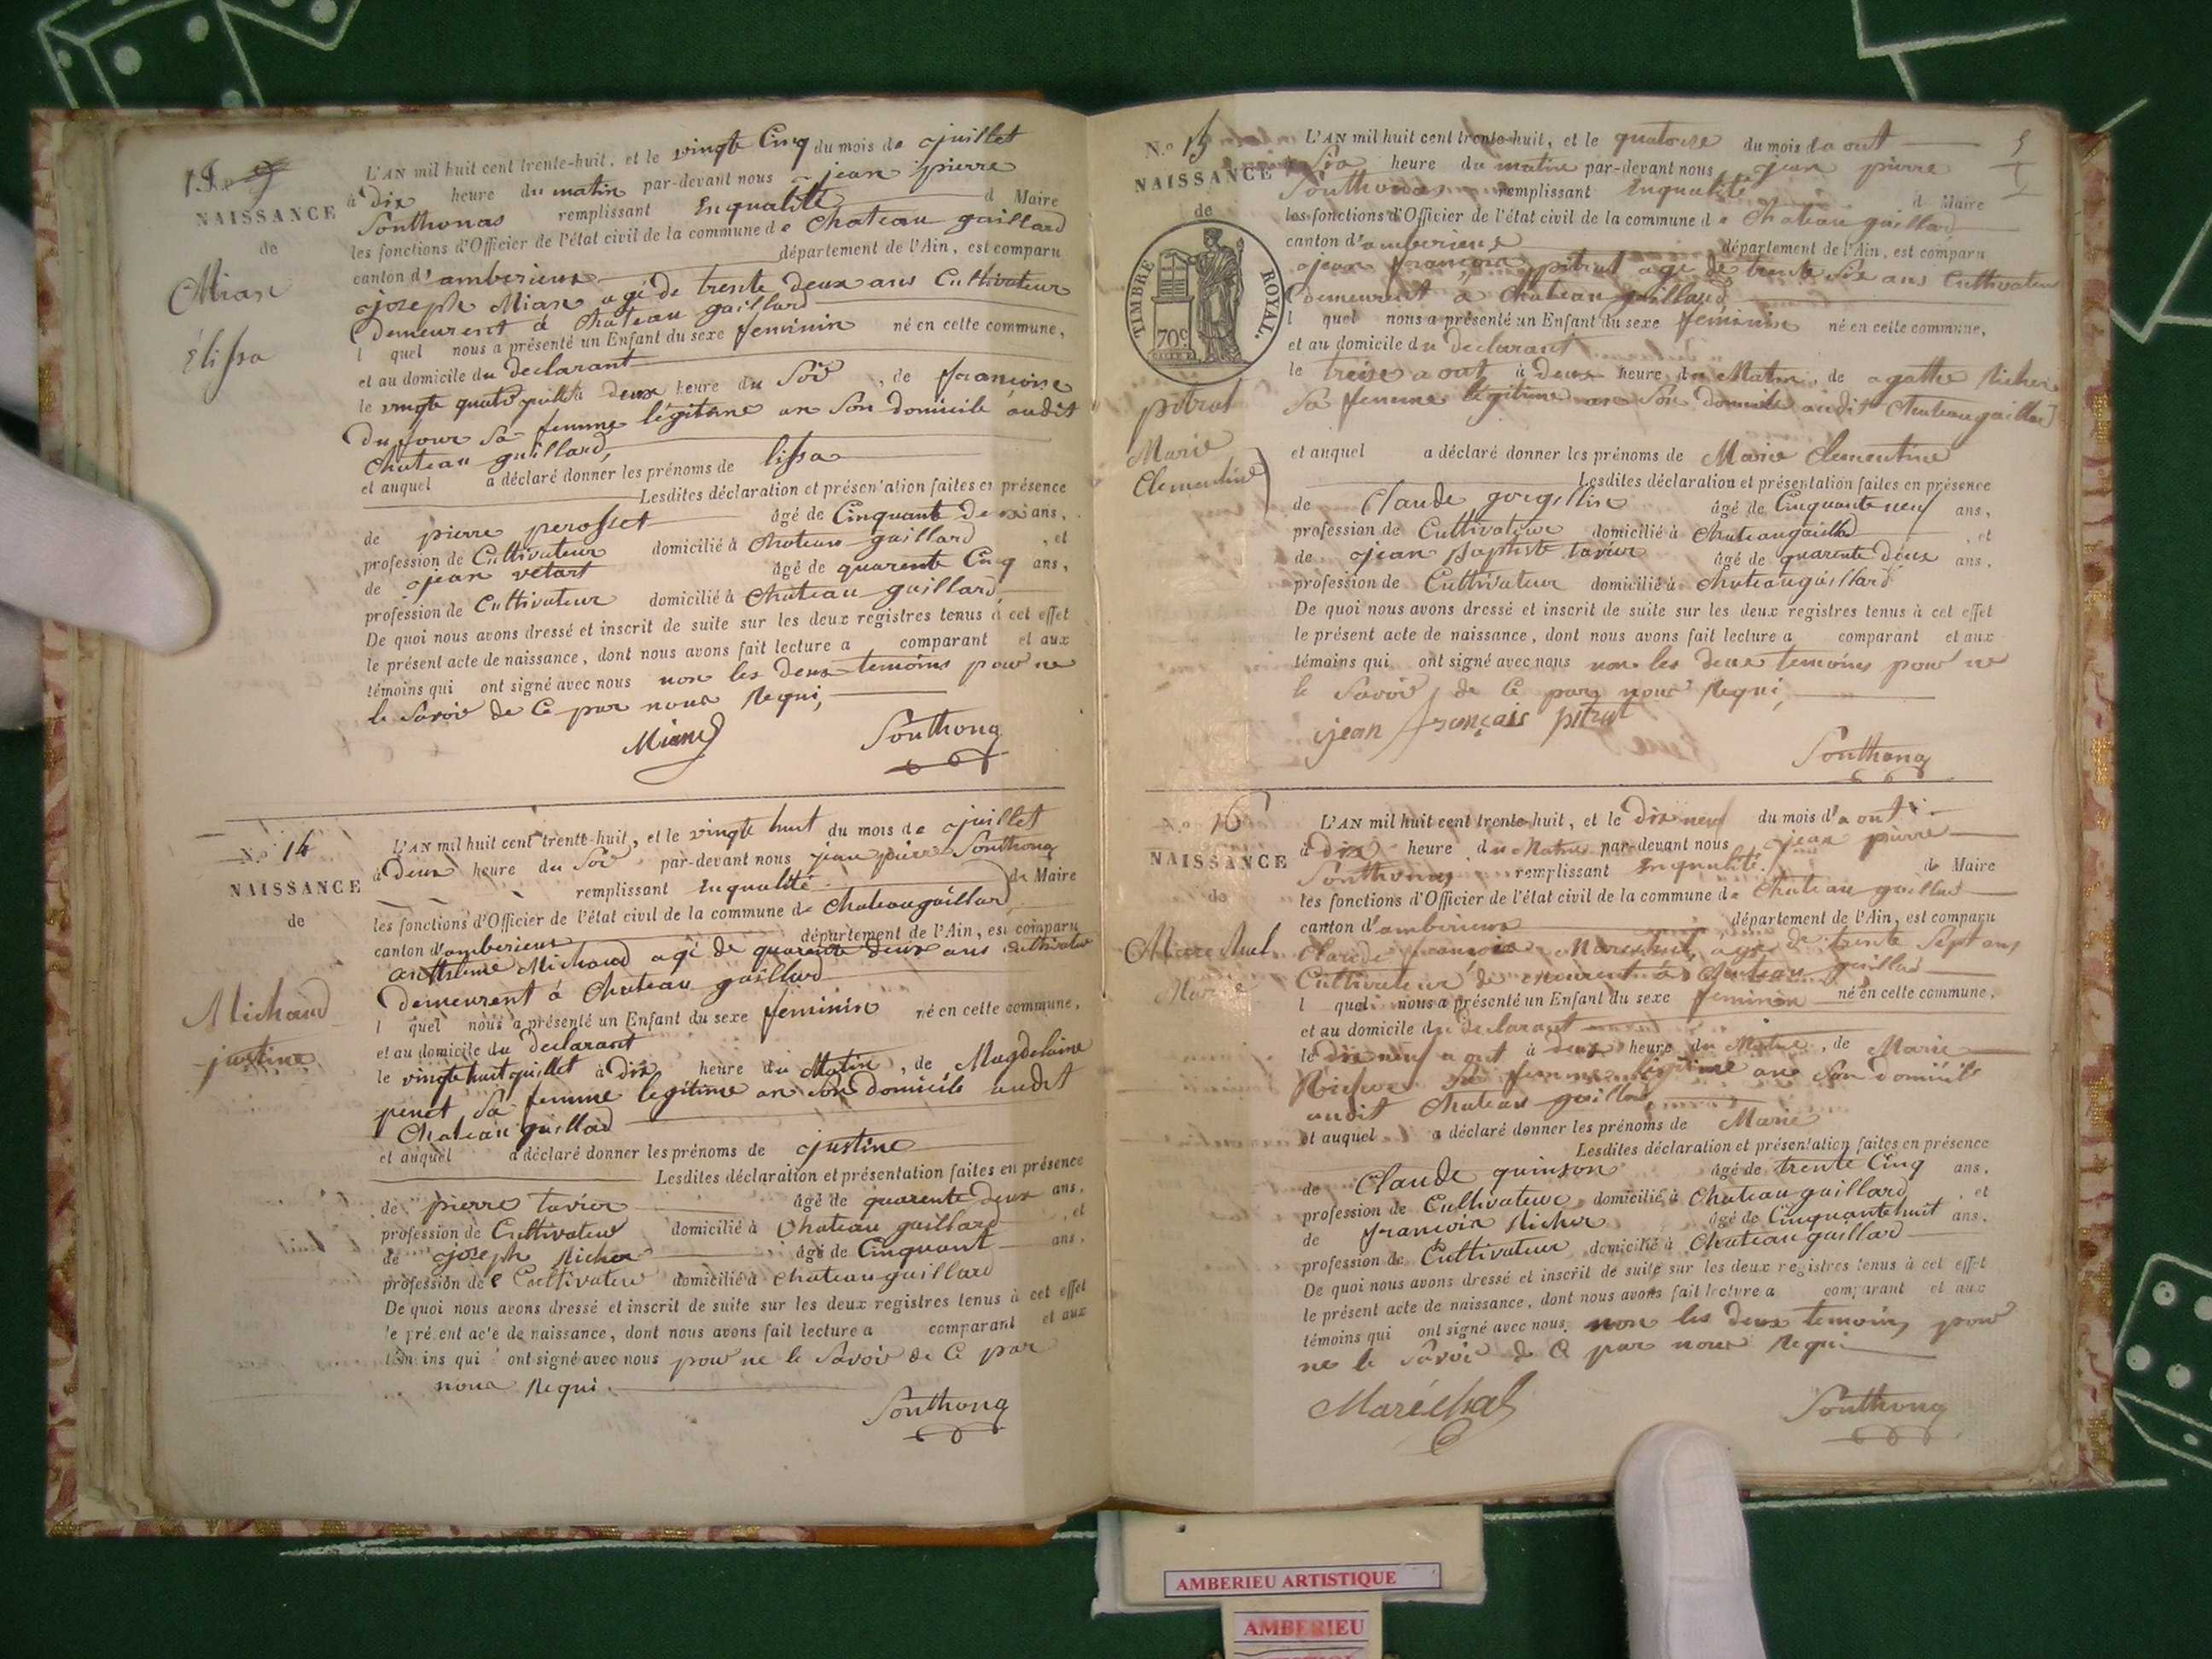 13
NAISSANCE
de
Mian
élissa
L'AN mil huit cent trente-huit, et le vingt Cinq du mois de juillet
à dix heure du matin par-devant nous jean pierre
Southonas remplissant Enqualité d Maire
les fonctions d'Officier de l'état civil de la commune de Chateau gaillard
canton d'amberieux département de l'Ain, est comparu
joseph Mian agé de trente deux ans Cultivateur
Demeurent à Chateau gaillard
l quel nous a présenté un Enfant du sexe feminin né en cette commune,
et au domicile du declarant
le vingt quatre juillet à deux heure du Soir, de francoise
Dufour Sa femme légitime an Son domicile audit
Chateau gaillard,
et auquel a déclaré donner les prénoms de lissa
Lesdites déclaration et présentation faites en présence
de pierre perosset âgé de Cinquante deux ans,
profession de Cultivateur domicilié à Chateau gaillard, et
de jean vetart âgé de quarente Cinq ans,
profession de Cultivateur domicilié à Chateau gaillard,
De quoi nous avons dressé et inscrit de suite sur les deux registres tenus à cet effet
le présent acte de naissance, dont nous avons fait lecture a comparant et aux
témoins qui ont signé avec nous non les deux temoins pour ne
le Savoir de Ce par nous Requi,
Miand Southona
N.º 14
NAISSANCE
de
Michaud
justine
L'AN mil huit cent trente-huit, et le vingt huit du mois de juillet
à Deux heure du Soir par-devant nous jean pierre Southona
remplissant Enqualité de Maire
les fonctions d'Officier de l'état civil de la commune de Chateaugaillard
canton d'amberieux département de l'Ain, est comparu
anthelme Michaud agé de quarente deux ans Cultivateur
Demeurent à Chateau gaillard
l quel nous a présenté un Enfant du sexe feminin né en cette commune,
et au domicile du declarant
le vingt huit juillet à dix heure du Matin, de Magdelaine
penet Sa femme legitime an Son domicile audit
Chateau gaillard
et auquel a déclaré donner les prénoms de justine
Lesdites déclaration et présentation faites en présence
de pierre tavier âgé de quarente deux ans,
profession de Cultivateur domicilié à Chateau gaillard, et
de joseph Richer âgé de Cinquant ans,
profession de Cultivateur domicilié à Chateau gaillard
De quoi nous avons dressé et inscrit de suite sur les deux registres tenus à cet effet
le présent acte de naissance, dont nous avons fait lecture a comparant et aux
témoins qui ont signé avec nous pour ne le Savoir de Ce par
nous Requi.
Southona
N.º 15
NAISSANCE
de
TIMBRE ROYAL.
70c
pitrat
Marie
Clementine
5
L'AN mil huit cent trente-huit, et le quatorze du mois d'aout
à Six heure du matin par-devant nous jean pierre
Southonas remplissant Enqualité d Maire
les fonctions d'Officier de l'état civil de la commune de Chateau gaillard
canton d'amberieux département de l'Ain, est comparu
jean francois pitrat agé de trente Six ans Cultivateur
Demeurent à Chateau gaillard
l quel nous a présenté un Enfant du sexe feminin né en cette commune,
et au domicile du declarant
le treize aout à deux heure du Matin, de agathe Richer
Sa femme légitime an Son domicile audit Chateaugaillard
et auquel a déclaré donner les prénoms de Marie Clementine
Lesdites déclaration et présentation faites en présence
de Claude âgé de Cinquante neuf ans,
profession de Cultivateur domicilié à Chateaugaillard, et
de jean Baptiste tavier âgé de quarente deux ans,
profession de Cultivateur domicilié à Chateaugaillard
De quoi nous avons dressé et inscrit de suite sur les deux registres tenus à cet effet
le présent acte de naissance, dont nous avons fait lecture a comparant et aux
témoins qui ont signé avec nous non les deux temoins pour ne
le Savoir de Ce par nous Requi,
jean français pitrat
Southona
N.º 16
NAISSANCE
de
Marechal
Marie
L'AN mil huit cent trente-huit, et le Dix neuf du mois d'aout
à Dix heure du Matin par-devant nous jean pierre
Southonas remplissant Enqualité de Maire
les fonctions d'Officier de l'état civil de la commune de Chateau gaillard
canton d'amberieux département de l'Ain, est comparu
Claude francois Marechal, agé de trente Sept ans
Cultivateur demeurent à Chateau gaillard
l quel nous a présenté un Enfant du sexe feminin né en cette commune,
et au domicile du declarant
le dix neuf aout à deux heure du Matin, de Marie
Richer Sa femme légitime an Son domicile
audit Chateau gaillard
et auquel a déclaré donner les prénoms de Marie
Lesdites déclaration et présentation faites en présence
de Claude quinson âgé de trente Cinq ans,
profession de Cultivateur domicilié à Chateau gaillard, et
de francois Richer âgé de Cinquante huit ans,
profession de Cultivateur domicilié à Chateau gaillard
De quoi nous avons dressé et inscrit de suite sur les deux registres tenus à cet effet
le présent acte de naissance, dont nous avons fait lecture a comparant et aux
témoins qui ont signé avec nous non les deux temoins pour
ne le Savoir de Ce par nous Requi
Maréchal Southona
AMBERIEU ARTISTIQUE
AMBERIEU